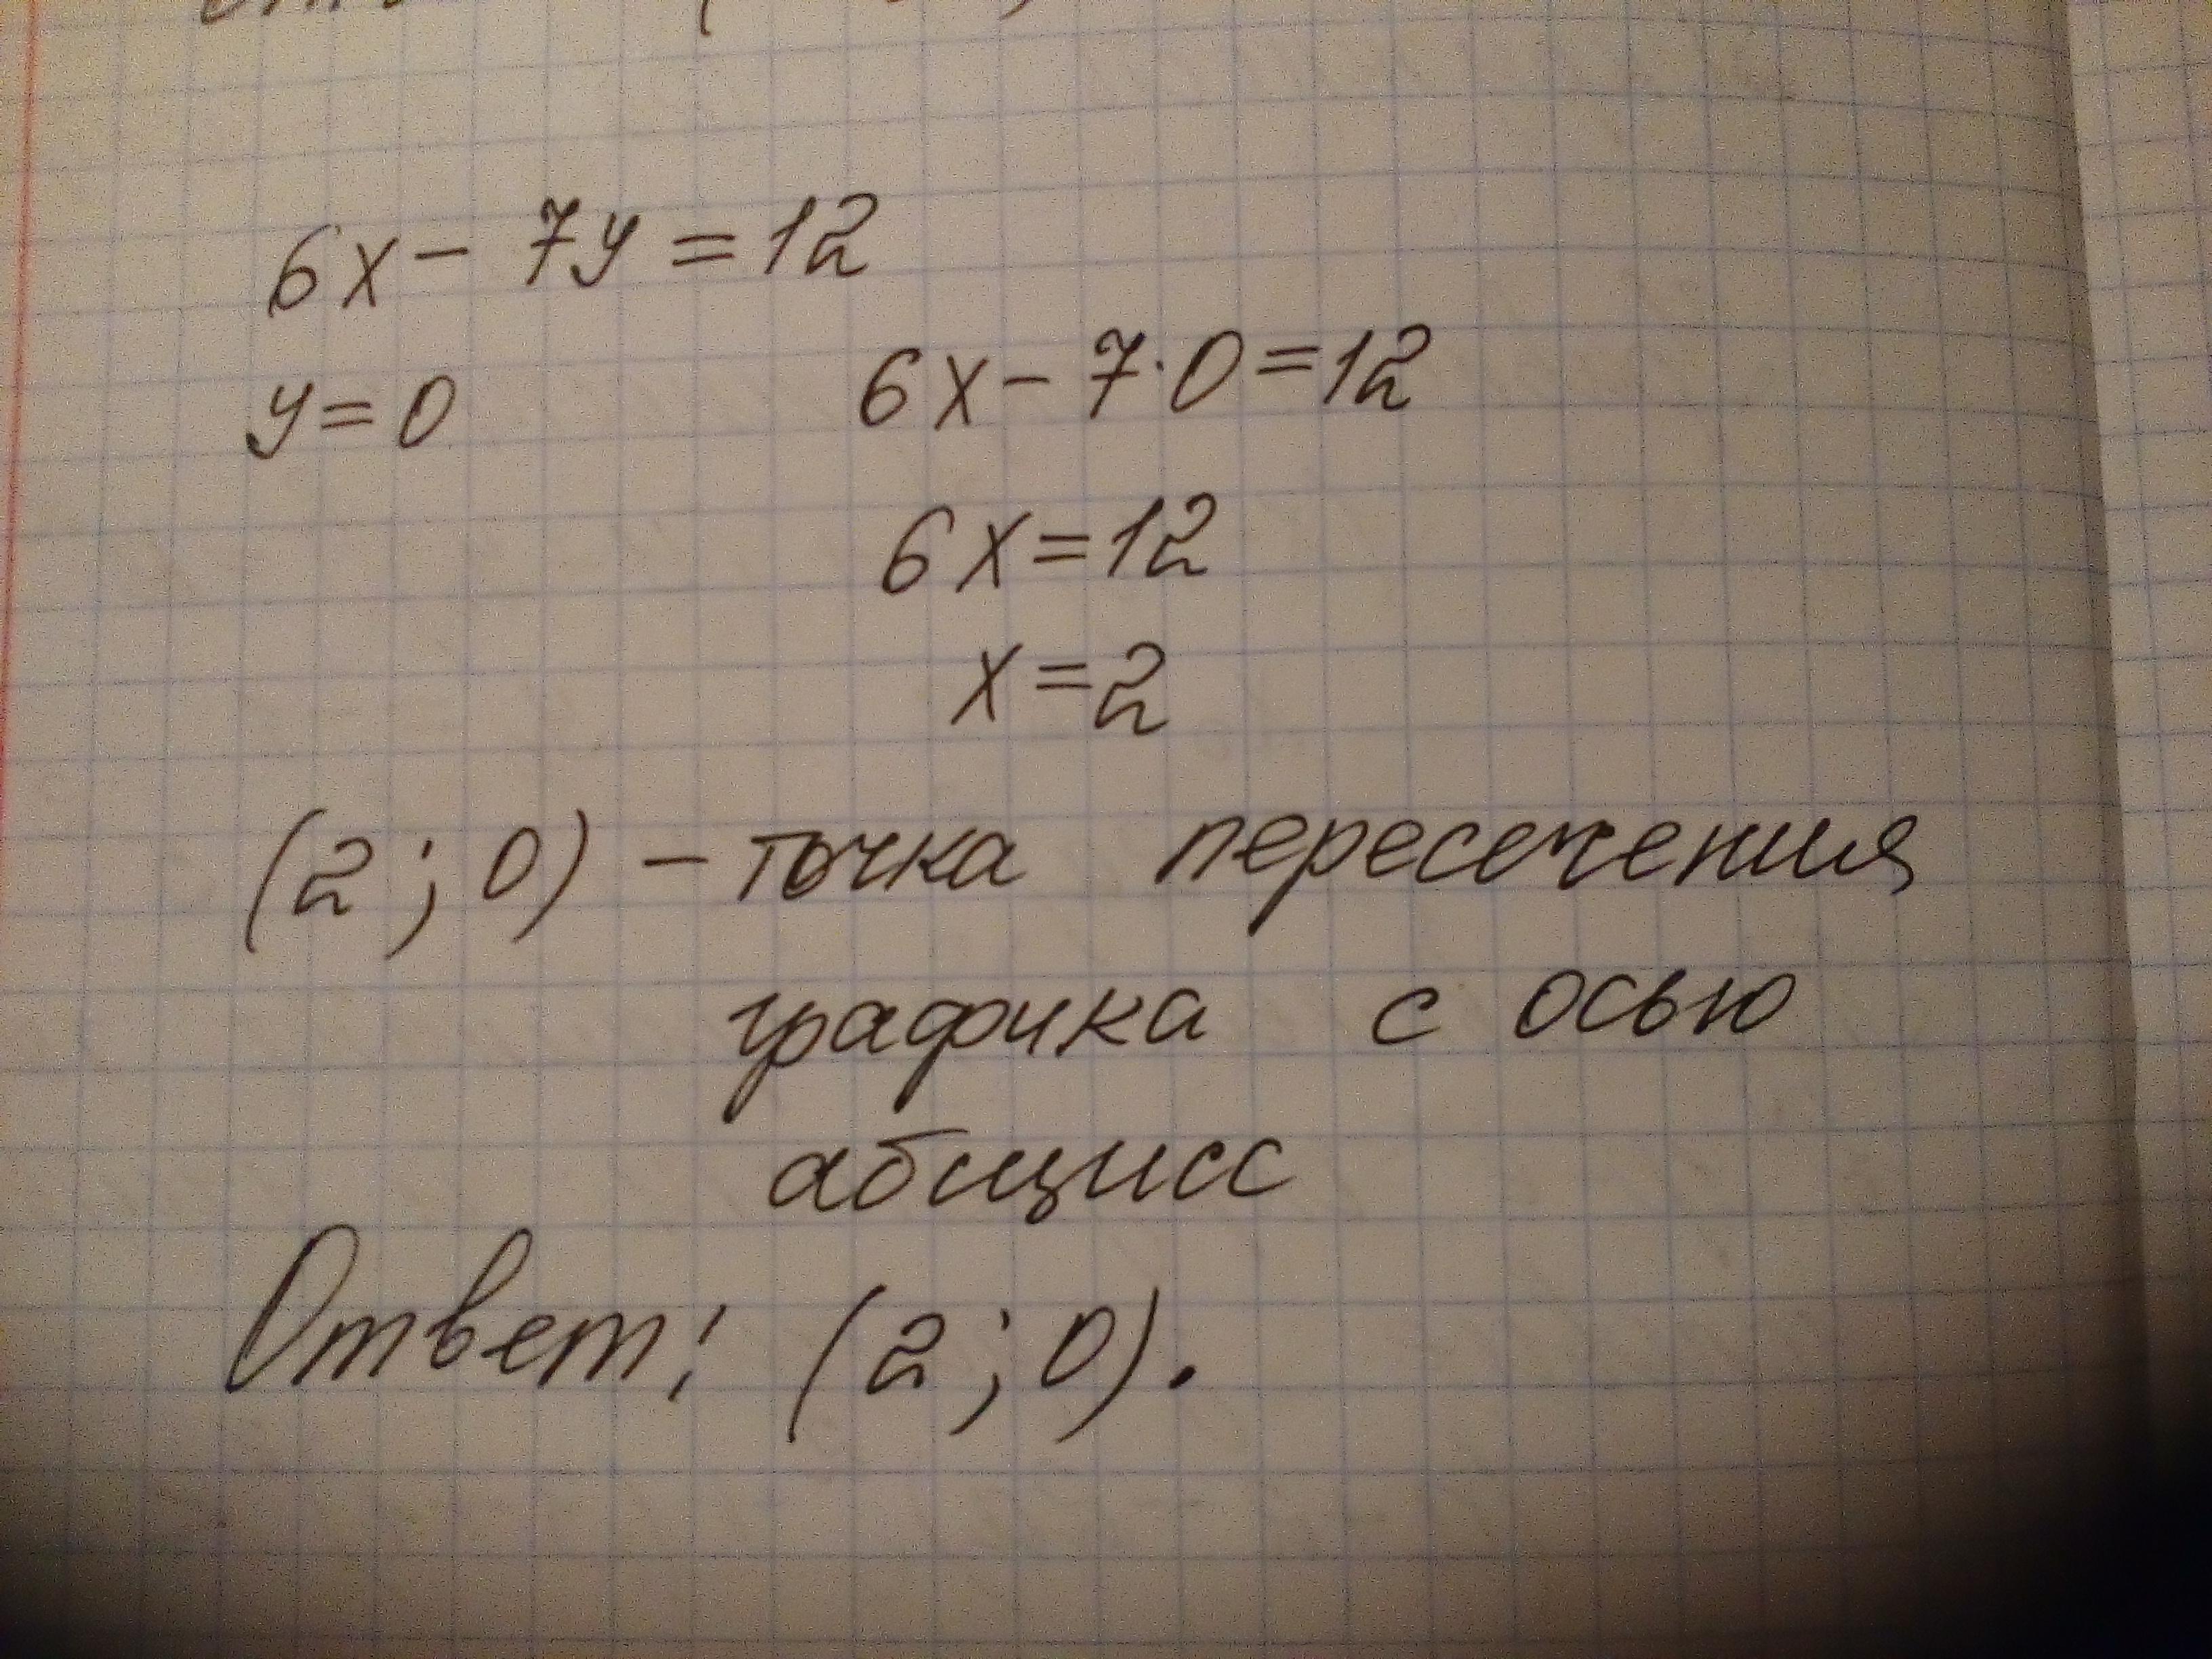 6x - 7y = 12
y = 0 6x - 7·0 = 12
6x = 12
x = 2
(2; 0) - точка пересечения
графика с осью
абсцисс
Ответ: (2; 0).